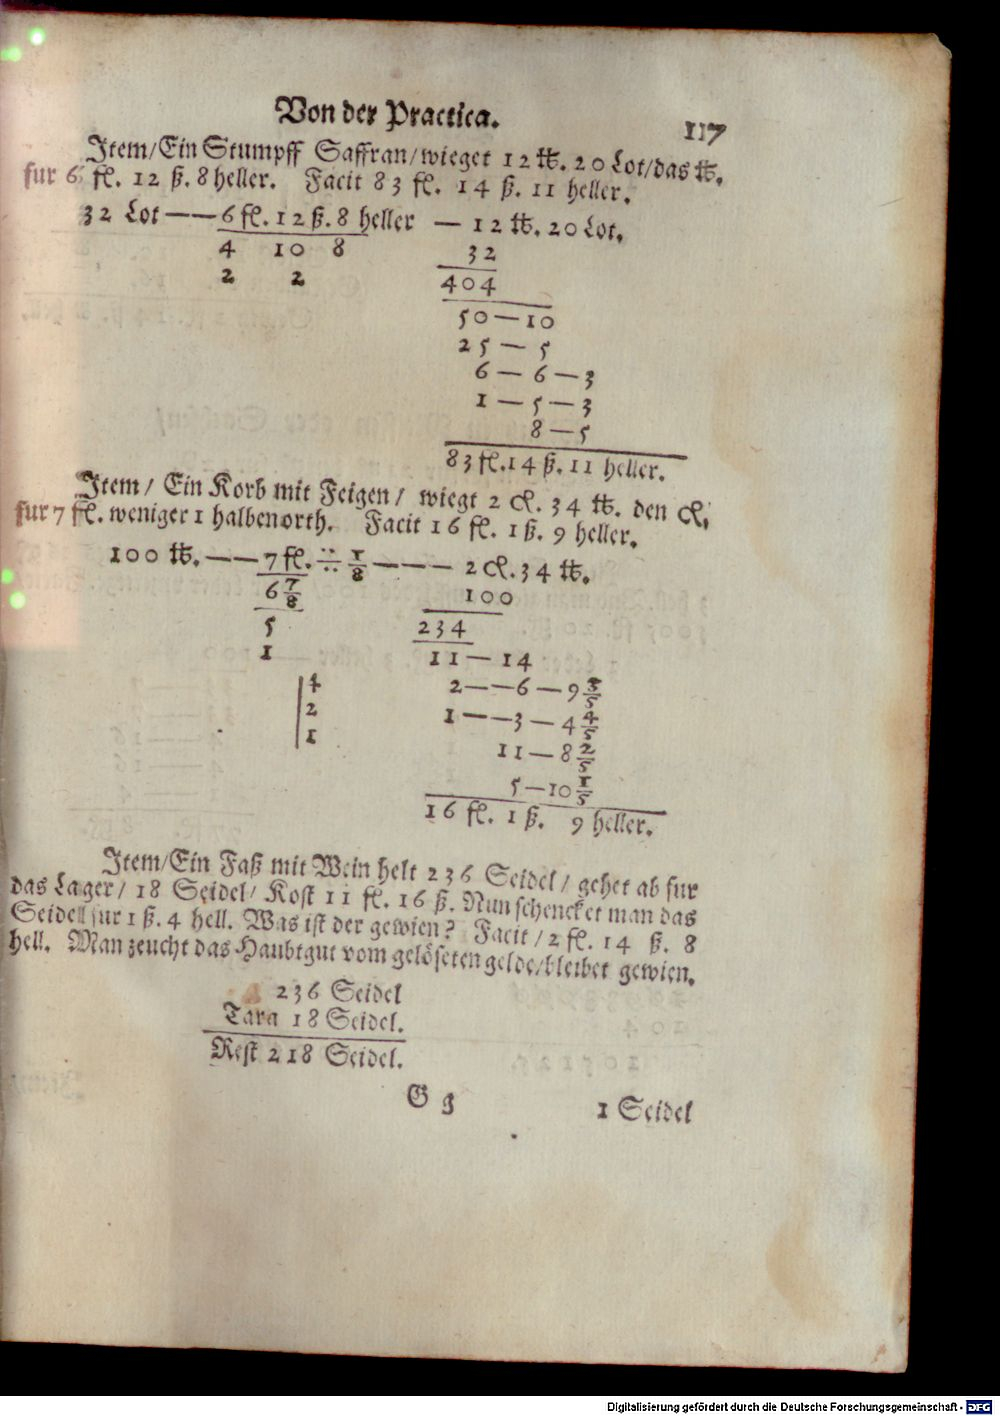 Von der Practica. 117
Item/Ein Stumpff Saffran/wieget 12 ℔. 20 Lot/das ℔.
fur 6 fl. 12 ß. 8 heller. Facit 83 fl. 14 ß. 11 heller.
32 Lot —— 6 fl. 12 ß. 8 heller — 12 ℔. 20 Lot.
4 10 8 32
2 2 404
50 — 10
25 — 5
6 — 6 — 3
1 — 5 — 3
8 — 5
83 fl. 14 ß. 11 heller.
Item/ Ein Korb mit Feigen/ wiegt 2 Cl. 34 ℔. den Cl.
fur 7 fl. weniger 1 halbenorth. Facit 16 fl. 1 ß. 9 heller.
100 ℔. —— 7 fl. ÷ 1/8 ——— 2 Cl. 34 ℔.
6 7/8 100
5 234
1 11 — 14
4 2 —— 6 — 9 3/5
2 1 —— 3 — 4 4/5
1 11 — 8 2/5
5 — 10 1/5
16 fl. 1 ß. 9 heller.
Item/Ein Faß mit Wein helt 236 Seidel/ gehet ab fur
das Lager/ 18 Seidel/ Kost 11 fl. 16 ß. Nun schencket man das
Seidell fur 1 ß. 4 hell. Was ist der gewien? Facit/ 2 fl. 14 ß. 8
hell. Man zeucht das Haubtgut vom gelöseten gelde/bleibet gewien.
236 Seidel
Tara 18 Seidel.
Rest 218 Seidel.
G g 1 Seidel
Digitalisierung gefördert durch die Deutsche Forschungsgemeinschaft - DFG